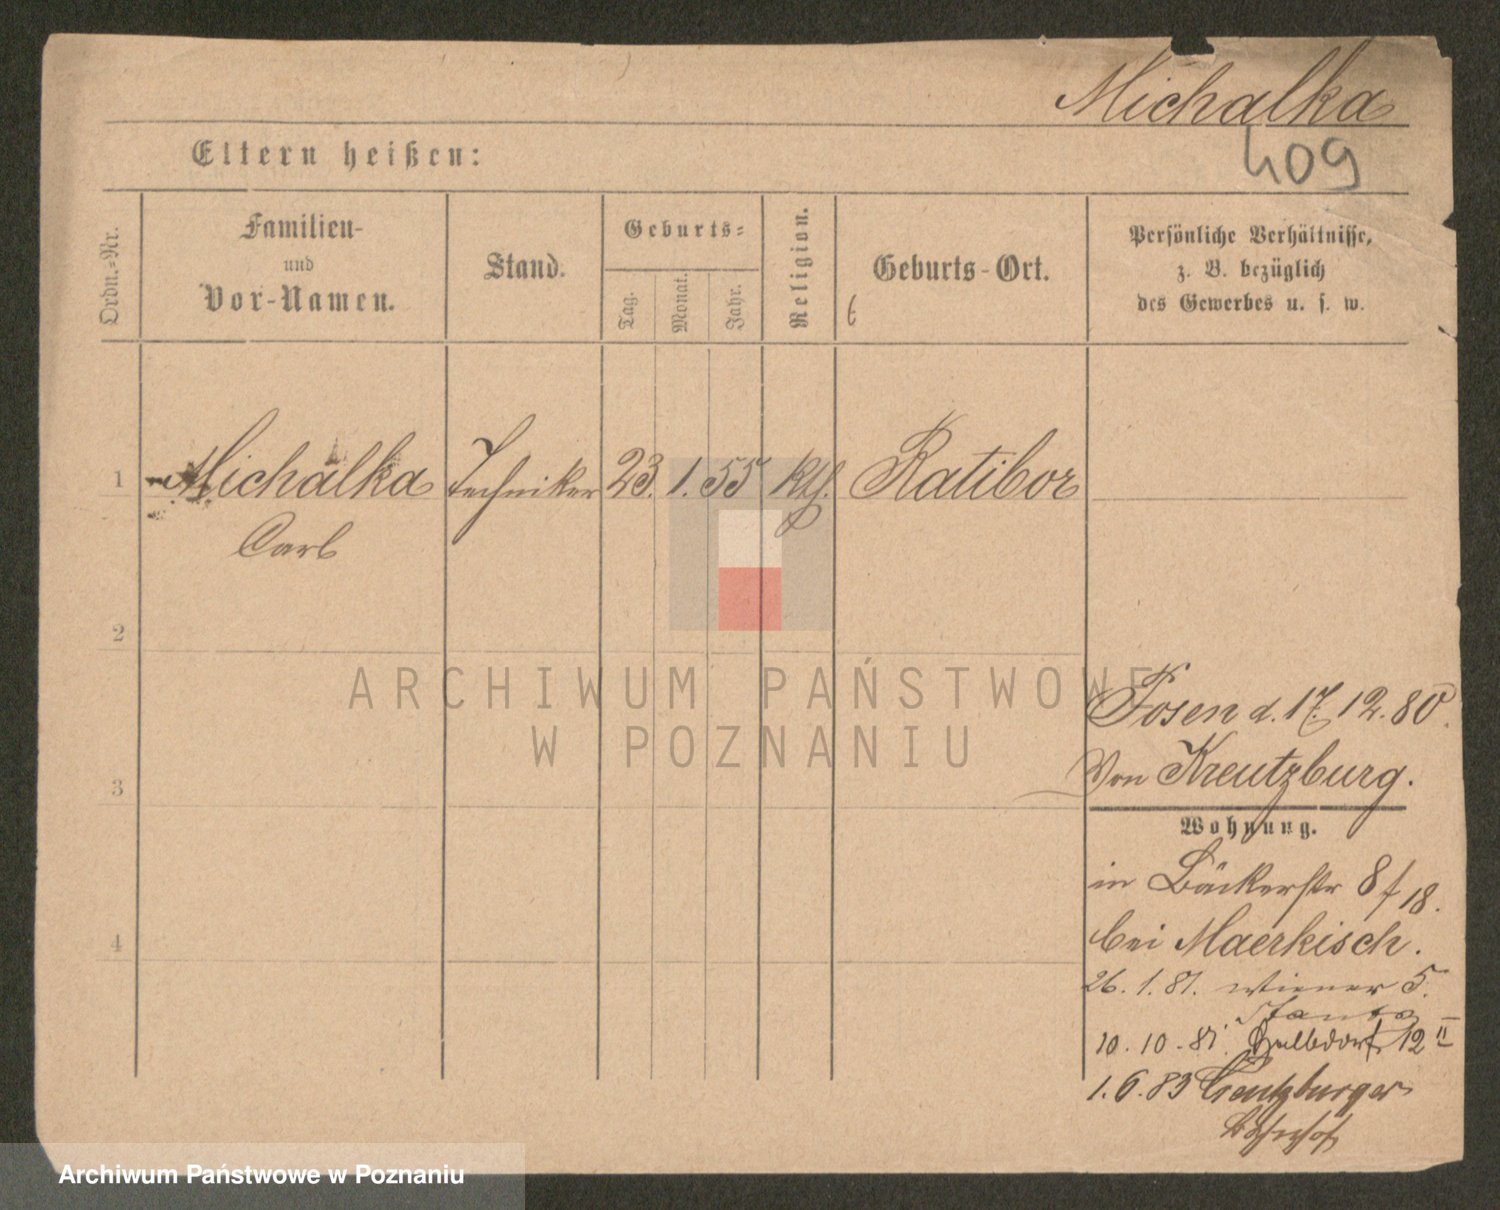 Michalka
409
Eltern heißen:
Ordn.-Nr.
Familien-
und
Vor-Namen.
Stand.
Geburts-
Tag.
Monat.
Jahr.
Religion.
Geburts-Ort.
Persönliche Verhältnisse,
z. B. bezüglich
des Gewerbes u. s. w.
1 Michalka Techniker 23. 1. 55 kth. Ratibor
Carl
2
3
4
Posen d. 17. 12. 80.
Von Kreutzburg.
Wohnung.
in Bäckerstr 8 / 18.
bei Maerkisch.
26. 1. 81. Wiener 5.
10. 10. 81. Halbdorf 12 II
1. 6. 83 Creutzburger
Bahnhof
ARCHIWUM PAŃSTWOWE
W POZNANIU
Archiwum Państwowe w Poznaniu